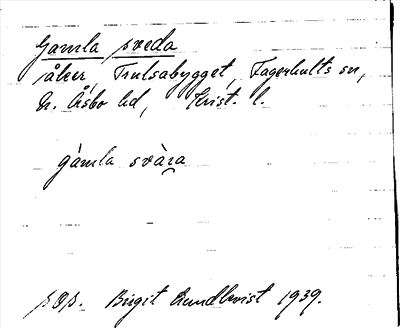 Gamla sveda
åker, Trulsabygget, Fagerhults sn,
N. Åsbo hd, Krist. l.
gàmla svàɐa
pop. Birgit Rundkvist 1939.